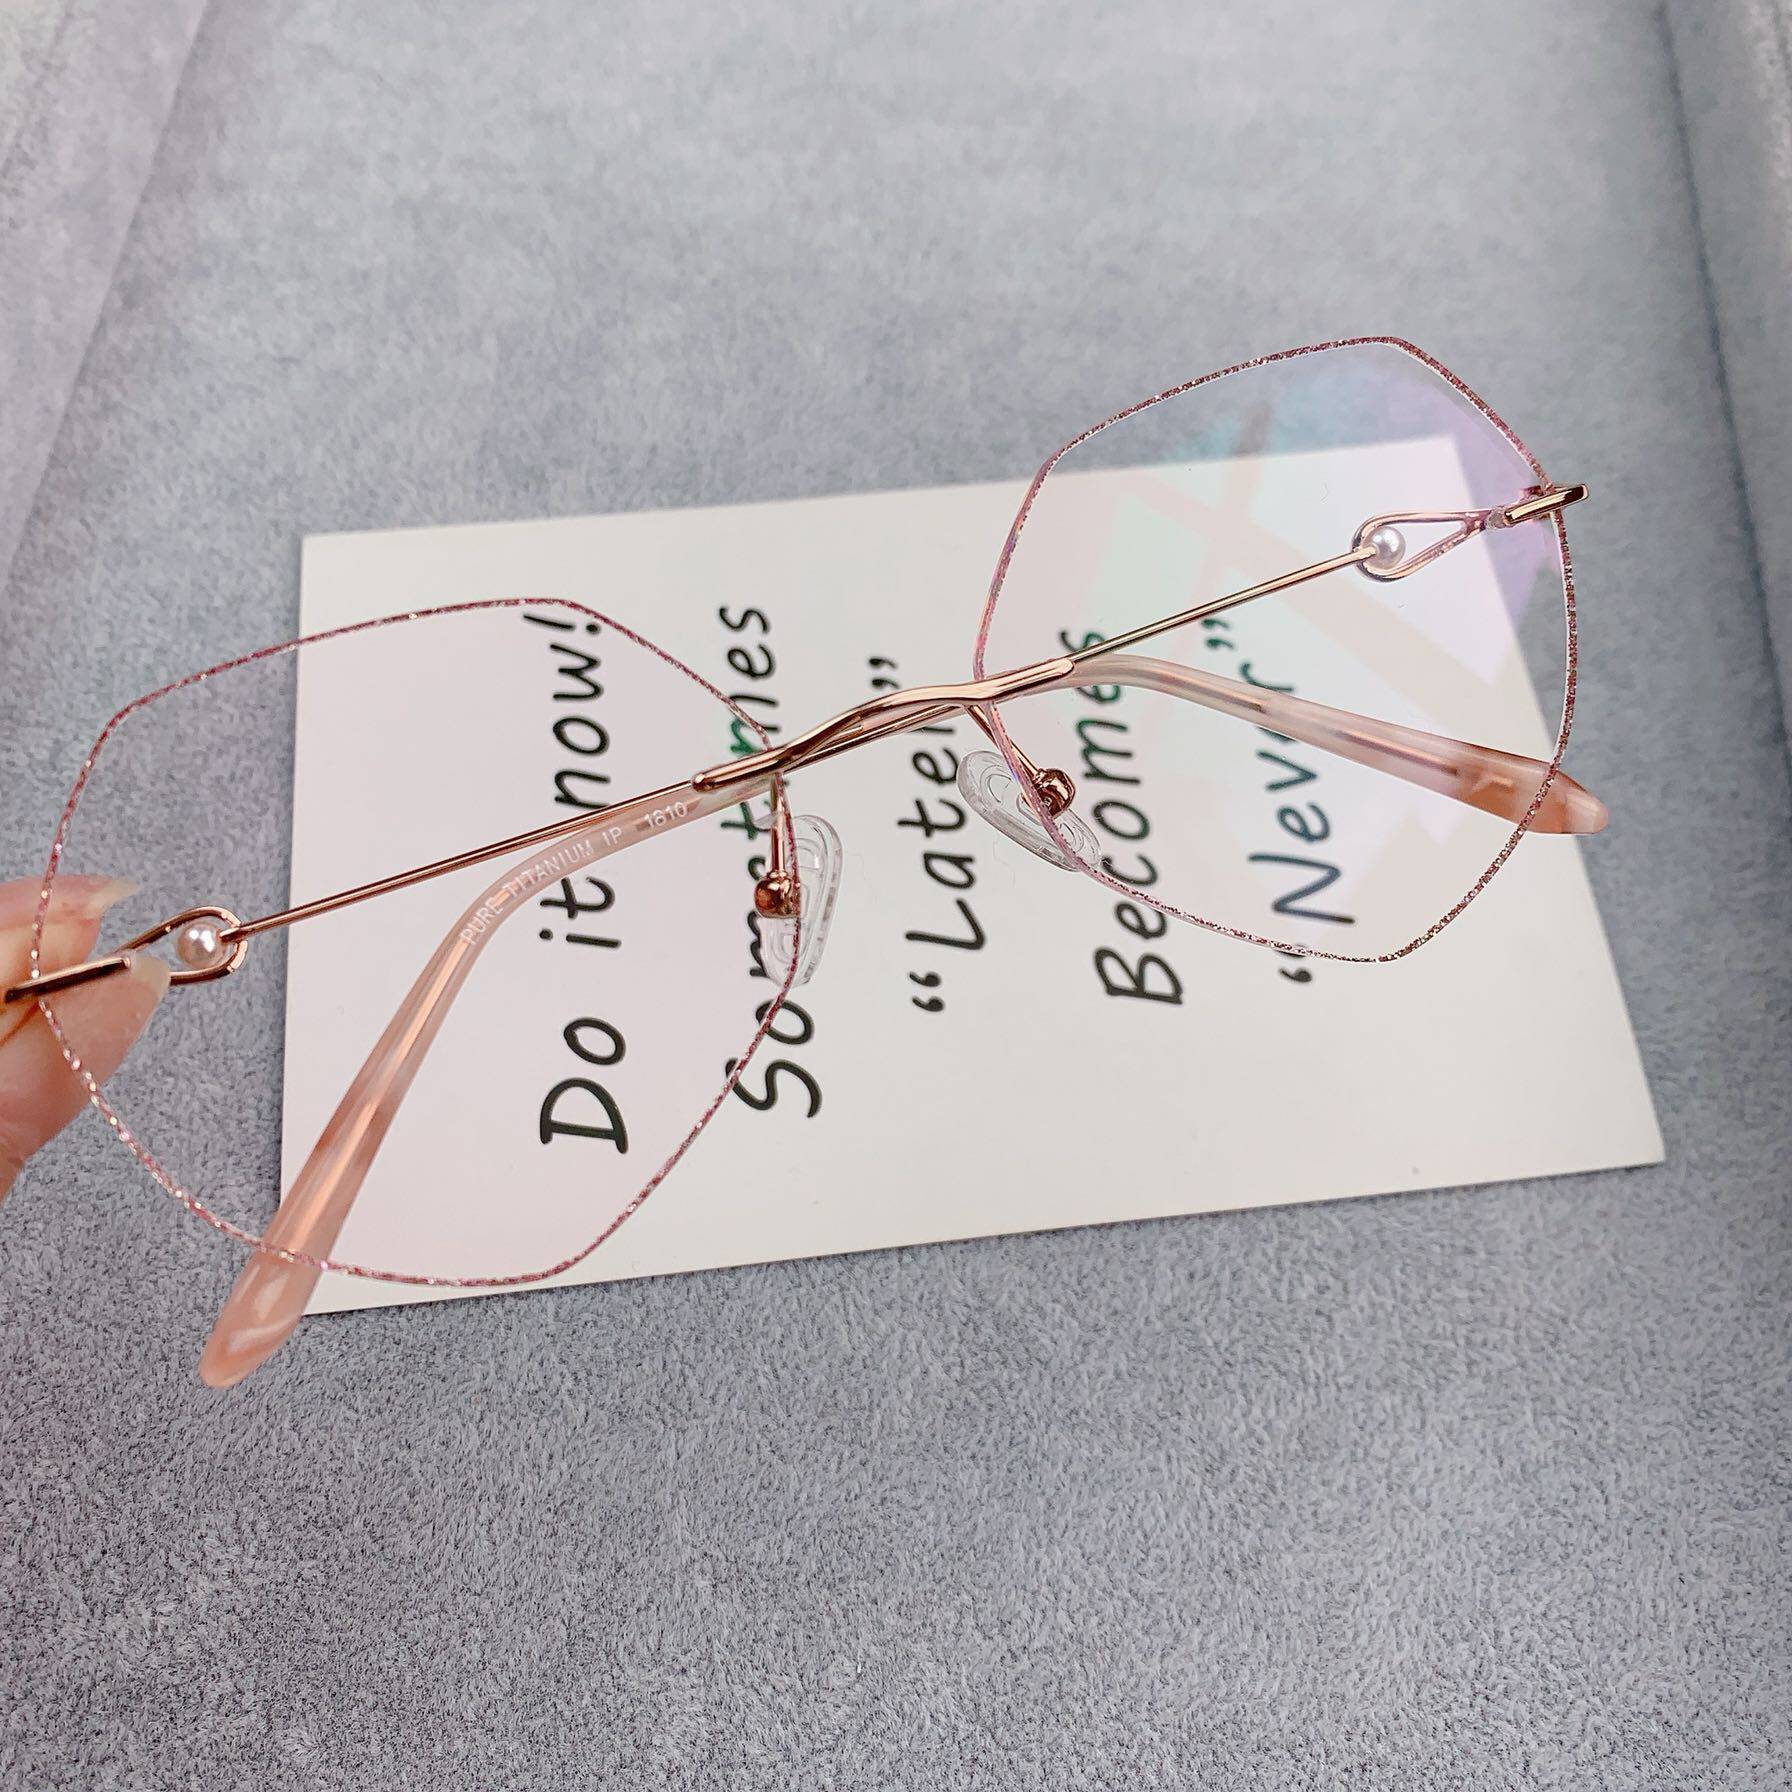 Do it now!
Sometimes
“Later”
Becomes
“Never”
PURE TITANIUM IP 1610